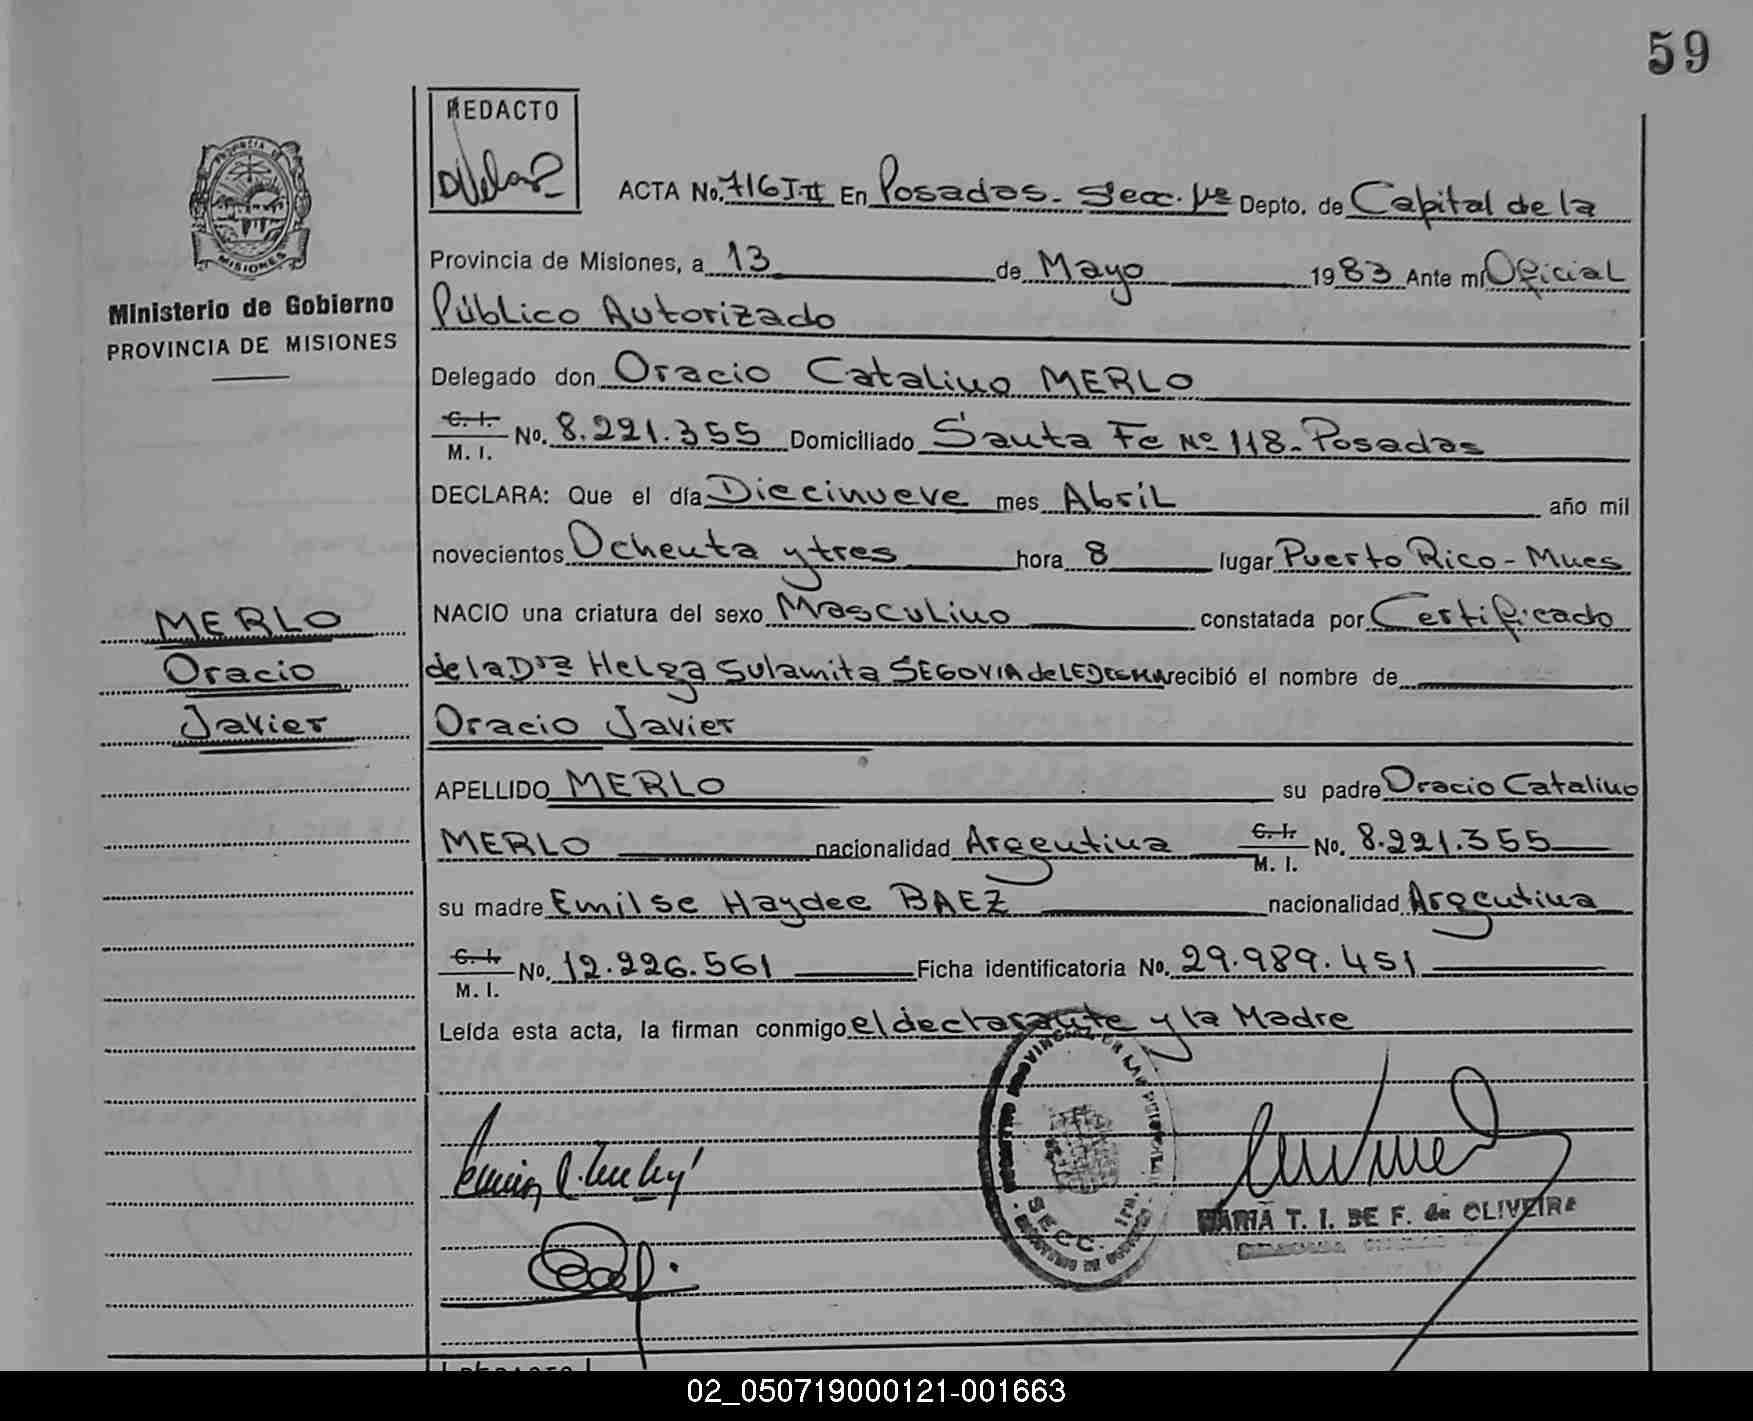 59
REDACTO
ACTA No. 716 T-II En Posadas - Secc. 1ra Depto. de Capital de la
PROVINCIA DE
MISIONES
Provincia de Misiones, a 13 de Mayo 1983 Ante mi Oficial
Ministerio de Gobierno
Público Autorizado
PROVINCIA DE MISIONES
Delegado don Oracio Catalino MERLO
C. I.
M. I. No. 8.221.355 Domiciliado Santa Fe Nº 118 - Posadas
DECLARA: Que el día Diecinueve mes Abril año mil
novecientos Ochenta y tres hora 8 lugar Puerto Rico - Mnes
MERLO
NACIO una criatura del sexo Masculino constatada por Certificado
Oracio
de la Dra Helga Sulamita SEGOVIA de LEDESMA recibió el nombre de
Javier
Oracio Javier
APELLIDO MERLO su padre Oracio Catalino
MERLO nacionalidad Argentina C. I. M. I. No. 8.221.355
su madre Emilse Haydee BAEZ nacionalidad Argentina
C. I.
M. I. No. 12.226.561 Ficha identificatoria No. 29.989.451
Leída esta acta, la firman conmigo el declarante y la Madre
SECC. 1ra.
MARIA T. I. DE F. de OLIVEIRA
02_050719000121-001663